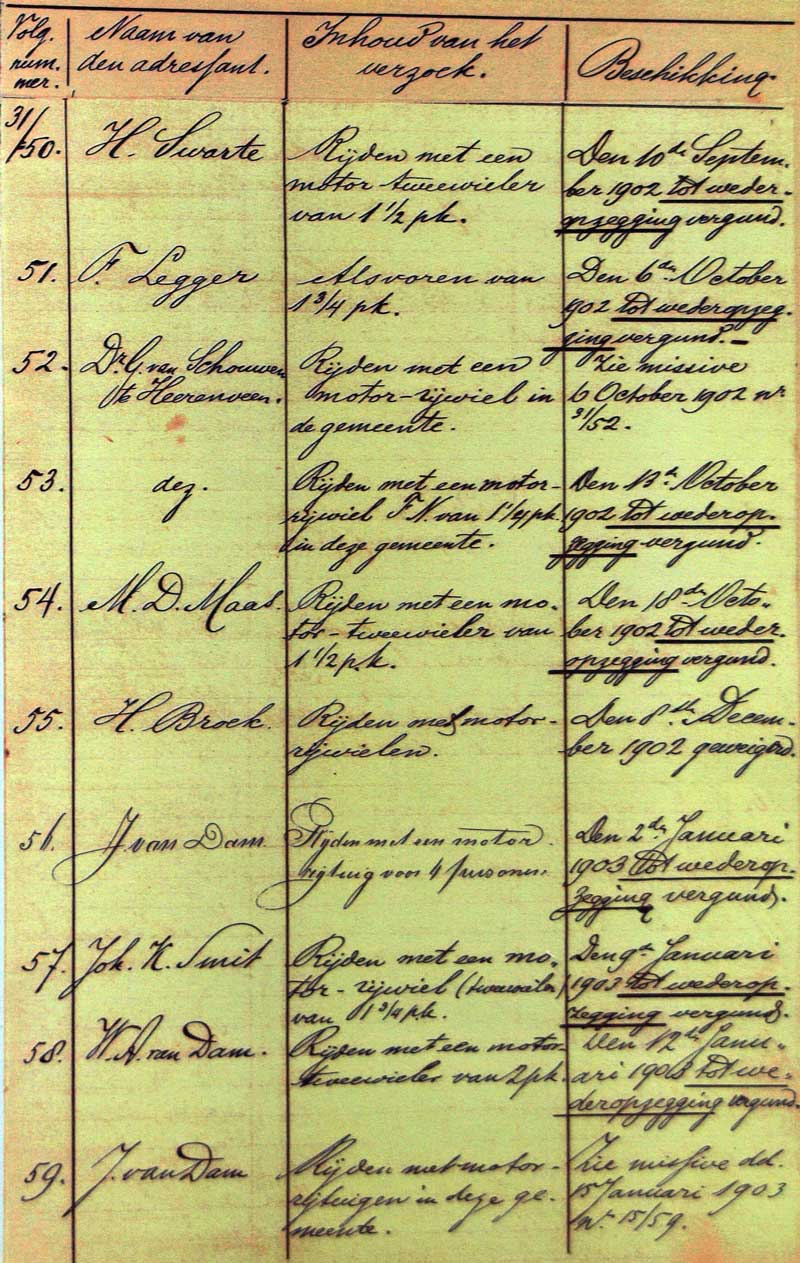 Volg. num. mer.
Naam van den adressant.
Inhoud van het verzoek.
Beschikking.
31/50.
H. Swarte
Rijden met een
motor tweewieler
van 1 1/2 pk.
Den 10de Septem-
ber 1902 tot weder-
opzegging vergund.
51.
F. Legger
Alsvoren van
1 3/4 pk.
Den 6de October
1902 tot wederopzeg-
ging vergund. —
52.
Dr. G. van Schouwen
te Heerenveen.
Rijden met een
motor-rijwiel in
de gemeente.
Zie missive
6 October 1902 nr
31/52.
53.
dez.
Rijden met een motor-
rijwiel F.N. van 1 1/4 pk.
in deze gemeente.
Den 13de October
1902 tot wederop-
zegging vergund.
54.
M. D. Maas.
Rijden met een mo-
tor-tweewieler van
1 1/2 p.k.
Den 18de Octo-
ber 1902 tot weder-
opzegging vergund.
55.
H. Broek.
Rijden met motor-
rijwielen.
Den 8ste Decem-
ber 1902 geweigerd.
56.
J van Dam.
Rijden met een motor
rijtuig voor 4 personen.
Den 2den Januari
1903 tot wederop-
zegging vergund.
57.
Joh. K. Smit
Rijden met een mo-
tor-rijwiel (tweewieler)
van 1 3/4 p.k.
Den 9de Januari
1903 tot wederop-
zegging vergund.
58.
W. A. van Dam.
Rijden met een motor-
tweewieler van 2 pk.
Den 12de Janu-
ari 1903 tot we-
deropzegging vergund.
59.
J. van Dam
Rijden met motor-
rijtuigen in deze ge-
meente.
Zie missive dd.
15 Januari 1903
nr. 15/59.